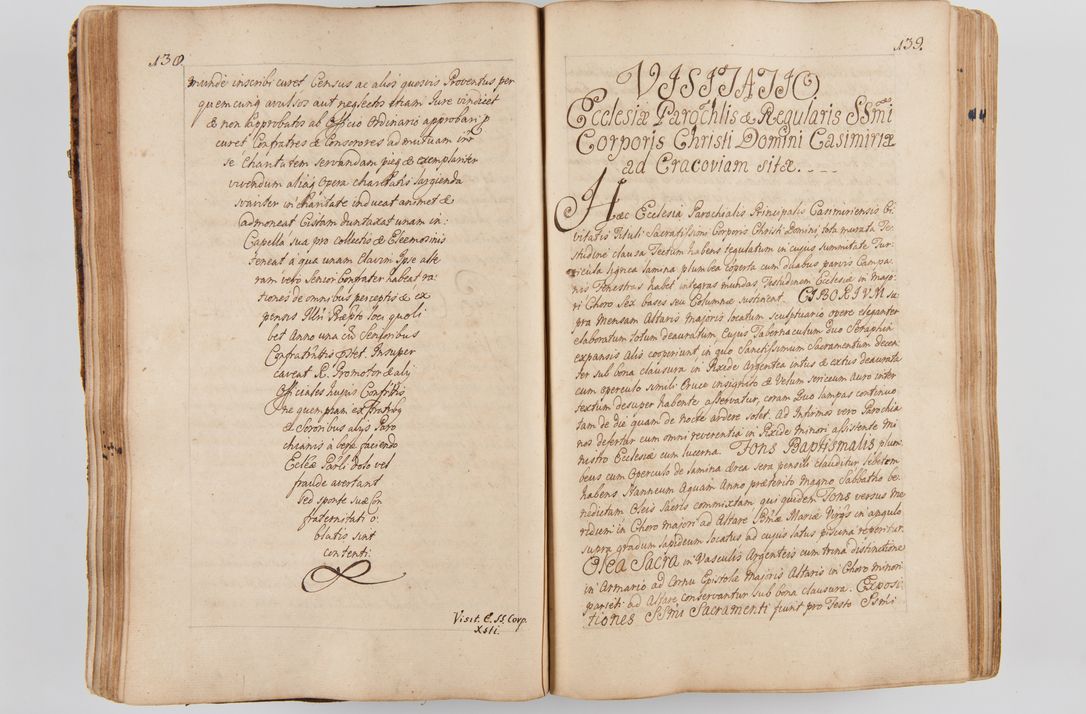 138
munde inscribi curet Census ac alios quosvis Proventus per
quemcunq avulsos aut neglectos etiam Jure vindicet
& non approbatos ab Officio Ordinario approbari p
curet Confratres & Consorores ad mutuam inr
se Charitatem servandam pieq & exemplariter
vivendum aliaq Opera charitatis largienda
suaviter in charitate indueat animet &
admoneat Cistam duntaxat unam in:
Capella sua pro collectis & Eleemosinis
teneat à qua unam Clavim Ipse alte
ram vero Senior Confrater habeat ra-
tiones de omnibus perceptis & ex
pensis Illri Præpto loci quoli
bet Anno una cū Senioribus
Confratrītis Insuper
caveat R. Promotor & alij
Officiales hujus Confrtis
ne quempiam ex fratribq
& Sororibus alijs Paro
chianis à bene faciendo
Ecclæ Parlī dolo vel
fraude avertant
sed sponte suæ Con
fraternitati o:
blatis sint
contenti.
Visit. E. SS Corp.
Xsti.
139.
VISITATIO
Ecclesiæ Parochlis & Regularis SSmi
Corporis Christi Domini Casimiriæ
ad Cracoviam sitæ. . . .
Hæc Ecclesia Parochialis Principalis Casimiriensis Ci
vitatis Tituli Sacratissimi Corporis Christi Domini, tota murata Te-
studine clausa Tectum habens tegulatum in cujus summitate Tur-
ricula lignea lamina plumbea cooperta cum duabus parvis Campa
nis Fenestras habet integras mundas, Testudinem Ecclesiæ in majo-
ri Choro Sex bases seu Columnæ sustinent. CIBORIUM su
pra Mensam Altaris majoris locatum sculptuario opere eleganter
elaboratum totum deauratum Cujus Tabernaculum duo Seraphin
expansis Alis cooperiunt in quo Sanctissimum Sacramentum decen
ter sub bona clausura in Pixide Argentea intus & extus deaurata
cum operculo simili Cruce insignito & Velum sericeum Auro inter
textum desuper habente asservatur, coram Quo lampas continuo
tam de die quam de nocte ardere solet. Ad Infirmos vero Parochia
nos defertur cum omni reverentia in Pixide minori assistente Mi
nistro Ecclesiæ cum lucerna. Fons Baptismalis plum
beus cum Operculo de lamina ærea sera pensili clauditur lebetem
habens stanneum Aquam Anno præterito magno Sabbatho be-
nedictam Oleis Sacris commixtam qui quidem Fons versus me
ridiem in Choro majori ad Altare Bmæ Mariæ Virgīs in angulo
supra gradum lapideum locatus ad cujus latus piscina reperitur.
Olea Sacra in Vasculis Argenteis cum trina distinctione
in Armario ad Cornu Epistolæ majoris Altaris in Choro minori
parieti ad Altare conservantur sub bona clausura. Exposi
tiones SSmi Sacramenti fiunt pro Festo SSmi